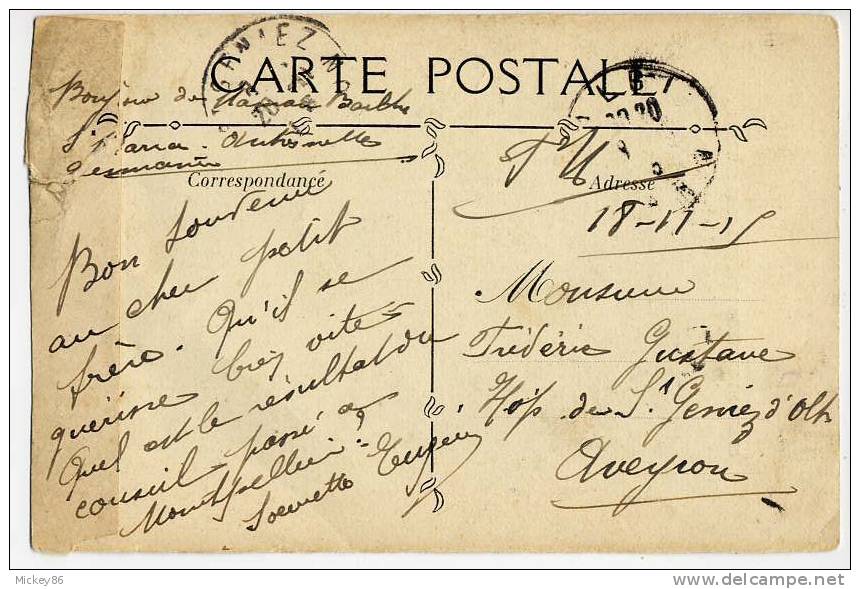 CARTE POSTALE
Bonjour de Barthe
Antoinette
Germaine
Correspondance
Bon Souvenir
au cher petit
frère. Qu'il se
guérisse bien vite
Quel est le résultat du
conseil passé a
Montpellier?
Soeurette
F M
Adresse
18-11-15
Monsieur
Frédéric Gustave
Hop. de St Geniez d'Olt
Aveyron
Mickey86
delcampe.net